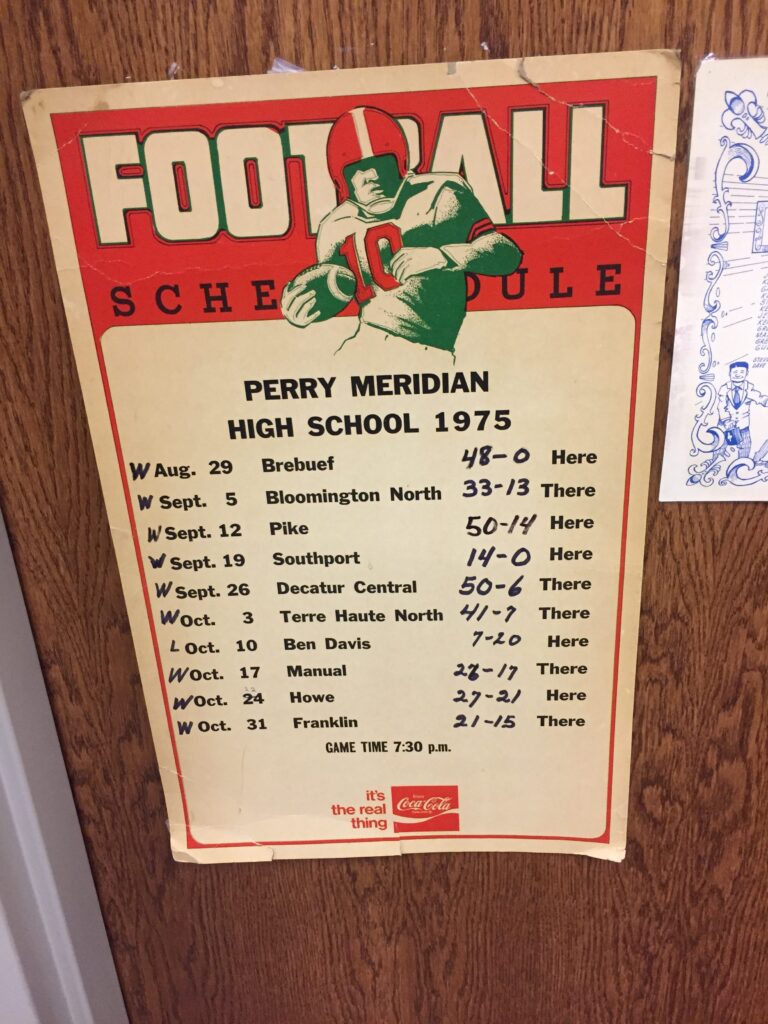 FOOTBALL
SCHEDULE
PERRY MERIDIAN
HIGH SCHOOL 1975
W Aug. 29 Brebuef 48-0 Here
W Sept. 5 Bloomington North 33-13 There
W Sept. 12 Pike 50-14 Here
W Sept. 19 Southport 14-0 Here
W Sept. 26 Decatur Central 50-6 There
W Oct. 3 Terre Haute North 41-7 There
L Oct. 10 Ben Davis 7-20 Here
W Oct. 17 Manual 28-17 There
W Oct. 24 Howe 27-21 Here
W Oct. 31 Franklin 21-15 There
GAME TIME 7:30 p.m.
it's
the real
thing
Enjoy
Coca-Cola
10